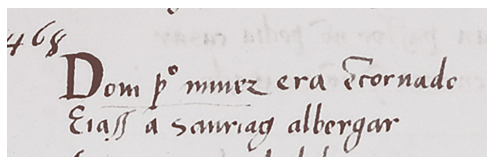 468
Dom pº nunez era ẽtornado
Eiaſſ a Santiag albergar